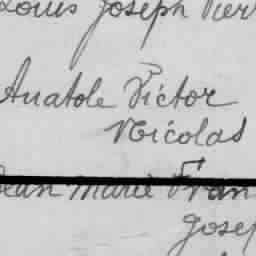 Louis Joseph Pierr
Anatole Victor
Nicolas
Jean Marie Fran
Josep